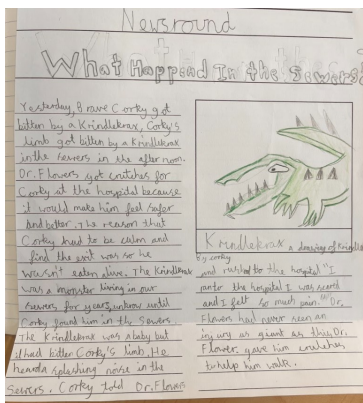 Newsround
What Happend In the Sewers?
Yesterday, Brave Corky got
bitten by a Krindlekrax, Corky's
limb got bitten by a Krindlekrax
in the sewers in the after noon.
Dr. Flowers got crutches for
Corky at the hospital because
it would make him feel safer
and better. The reason that
Corky had to be calm and
find the exit was so he
wasn't eaten alive. The Krindlekrax
was a monster living in our
sewers for years, unknow until
Corky found him in the sewers.
The Krindlekrax was a baby but
it had bitten Corky's limb. He
heard a splashing noise in the
sewers. Corky told Dr. Flowers
Krindlekrax a drawing of Krindlekrax
by corky
and rushed to the hospital "I
ran to the hospital I was scared
and I felt so much pain." Dr.
Flowers had never seen an
injury as giant as this, Dr.
Flower gave him crutches
to help him walk.